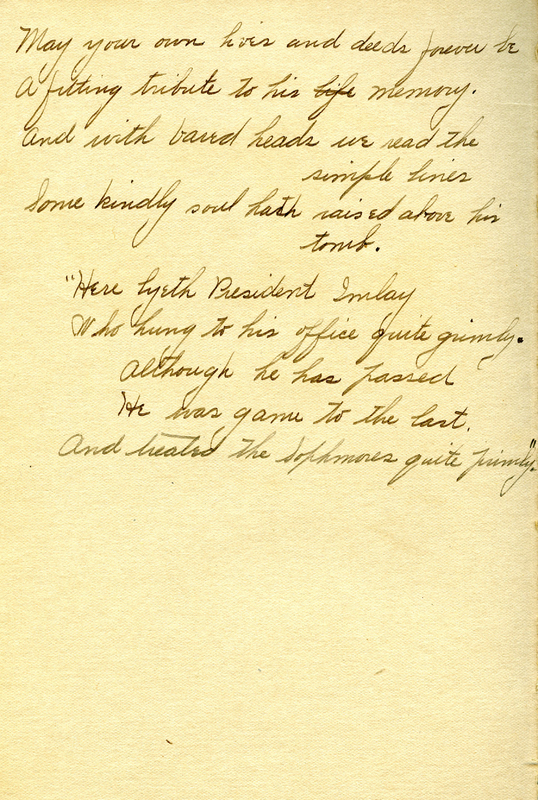 May your own lives and deeds forever be
A fitting tribute to his life memory.
And with bared heads we read the
simple lines
Some kindly soul hath raised above his
tomb.
"Here lyeth President Imlay
Who hung to his office quite grimly.
Although he has passed
He was game to the last.
And treated the Sophmores quite primly".